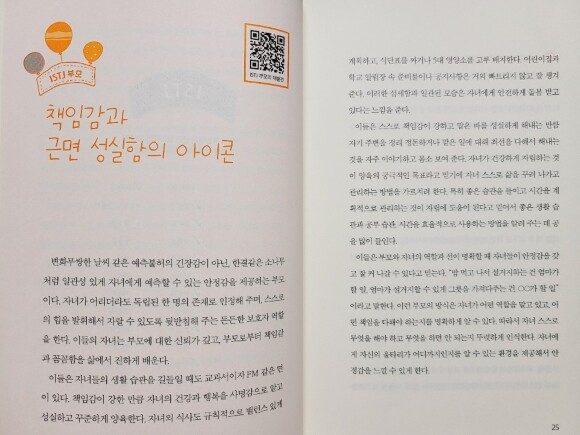 ISTJ 부모
책임감과
근면 성실함의 아이콘
변화무쌍한 날씨 같은 예측불허의 긴장감이 아닌, 한결같은 소나무
처럼 일관성 있게 자녀에게 예측할 수 있는 안정감을 제공하는 부모
이다. 자녀가 어리더라도 독립된 한 명의 존재로 인정해 주며, 스스로
의 힘을 발휘해서 자랄 수 있도록 뒷받침해 주는 든든한 보호자 역할
을 한다. 이들의 자녀는 부모에 대한 신뢰가 깊고, 부모로부터 책임감
과 꼼꼼함을 삶에서 진하게 배운다.
이들은 자녀들의 생활 습관을 길들일 때도 교과서이자 FM 같은 면
이 있다. 책임감이 강한 만큼 자녀의 건강과 행복을 사명감으로 알고
성실하고 꾸준하게 양육한다. 자녀의 식사도 규칙적으로 밸런스 있게
계획하고, 식단표를 짜거나 5대 영양소를 고루 배치한다. 어린이집과
학교 알림장 속 준비물이나 공지사항은 거의 빠트리지 않고 잘 챙겨
준다. 이러한 섬세함과 일관된 모습은 자녀에게 안전하게 돌봄 받고
있다는 느낌을 준다.
이들은 스스로 책임감이 강하고 맡은 바를 성실하게 해내는 만큼
자기 주변을 정리 정돈하거나 맡은 일에 대해 최선을 다해서 해내는
것을 자주 이야기하고 몸소 보여 준다. 자녀가 건강하게 자립하는 것
이 양육의 궁극적인 목표라고 믿기에 자녀 스스로 삶을 꾸려 나가고
관리하는 방법을 가르치려 한다. 특히 좋은 습관을 들이고 시간을 계
획적으로 관리하는 것이 자립에 도움이 된다고 믿어서 좋은 생활 습
관과 공부 습관, 시간을 효율적으로 사용하는 방법을 알려 주는 데 공
을 많이 들인다.
이들은 부모와 자녀의 역할과 선이 명확할 때 자녀들이 안정감을 갖
고 잘 커 나갈 수 있다고 믿는다. "밥 먹고 나서 설거지하는 건 엄마가
할 일, 엄마가 설거지할 수 있게 그릇을 가져다주는 건 ○○가 할 일"
이라고 말한다. 이런 부모의 방식은 자녀가 어떤 역할을 맡고 있고, 어
떤 책임을 다해야 하는지를 명확하게 알 수 있다. 따라서 자녀 스스로
무엇을 해야 하고 무엇을 하면 안 되는지 뚜렷하게 인식한다. 자녀에
게 자신의 울타리가 어디까지인지를 알 수 있는 환경을 제공해서 안
정감을 느낄 수 있게 한다.
25